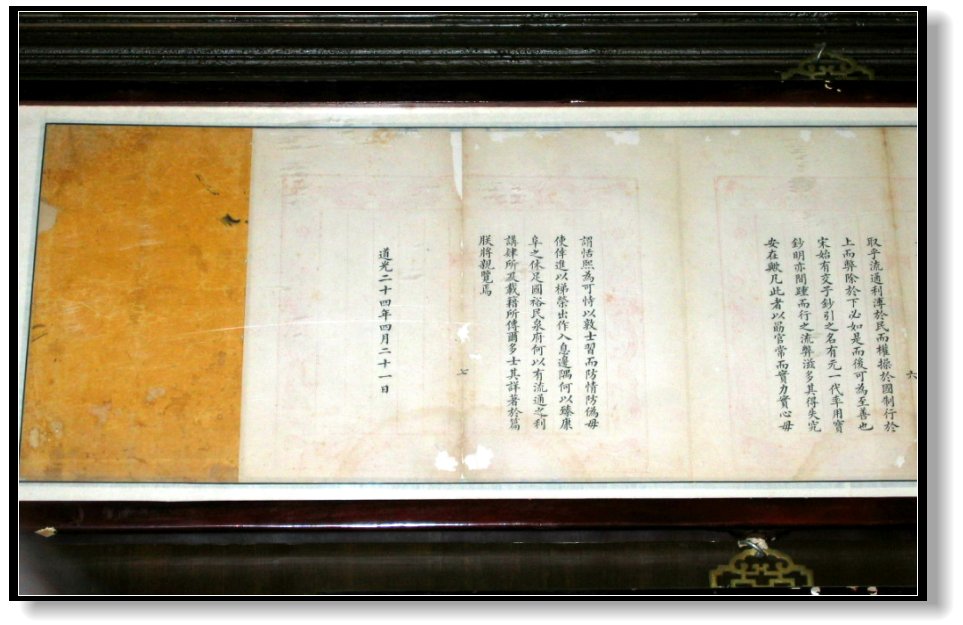 取乎流通利溥於民而權操於國制行於
上而弊除於下必如是而後可為至善也
宋始有交子鈔引之名有元一代率用寶
鈔明亦間踵而行之流弊滋多其得失究
安在歟凡此者以勗官常而實力實心毋
謂恬熙為可恃以敦士習而防情防偽毋
使倖進以梯榮出作入息邊隅何以臻康
阜之休足國裕民泉府何以有流通之利
講肄所及載籍所傳爾多士其詳著於篇
朕將親覽焉
道光二十四年四月二十一日
六
七